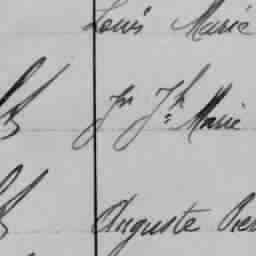 Louis Marie
Jn Jh Marie
Auguste